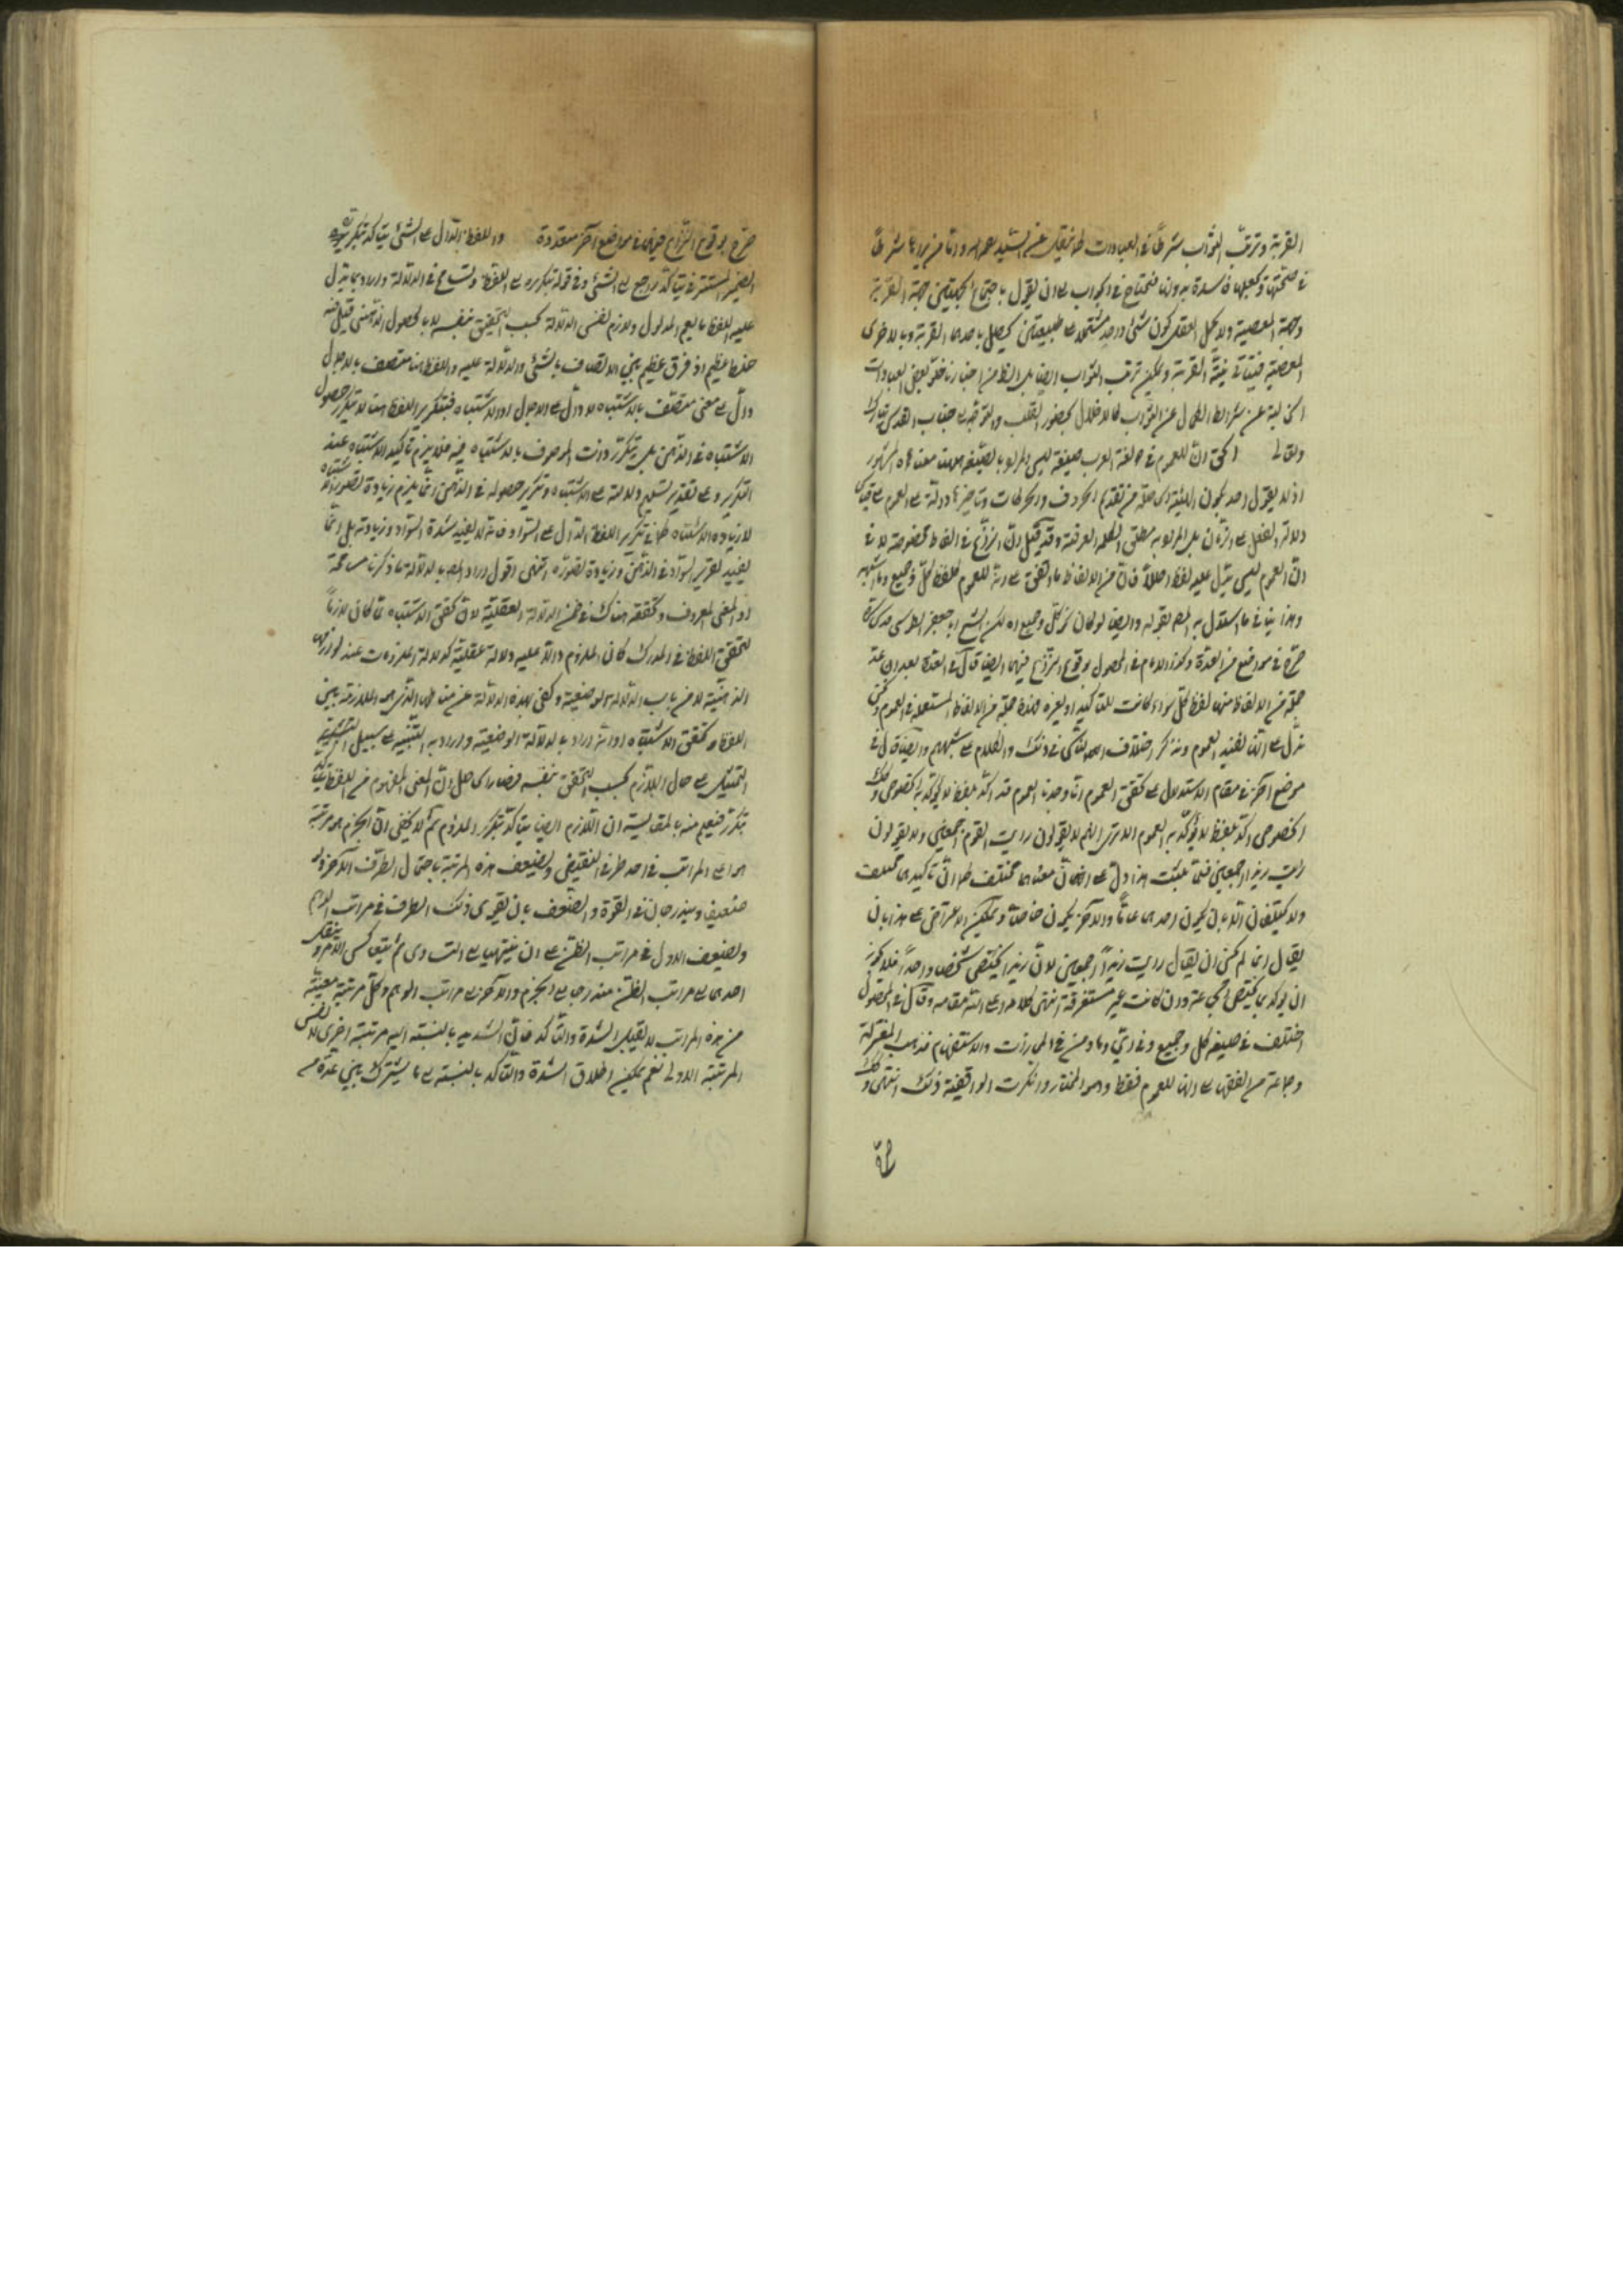 القربة وترتب الثواب شرطا في العبادات كما نقل عن السيد وأما من يراها شرطا
في صحتها ويجعلها فاسدة بدونها فيحتاج في الجواب إلى أن يقول باجتماع الجهتين جهة القربة
وجهة المعصية ولا يحيل العقل كون شيء واحد مشتملا على طبيعتين يحصل بإحداهما القربة وبالأخرى
المعصية فيتأتى نية القربة ويمكن ترتب الثواب أيضا بل الظاهر من أخبارنا خلو بعض العبادات
الخالية عن شرائط الكمال عن الثواب كالإخلال بحضور القلب والتوجه إلى جناب القدس تبارك
وتعالى الحق أن للعموم في لغة العرب صيغة ليس المراد بالصيغة ههنا معناه المشهور
إذ لا يقول أحد بكون الهيئة الحاصلة من تقديم الحروف والحركات وتأخيرها دالة على العموم على قياس
دلالة الفعل على الزمان بل المراد به مطلق الكلمة العرفية وقد قيل إن النزاع في ألفاظ مخصوصة لا في
أن العموم ليس يدل عليه لفظ أصلا فإن من الألفاظ ما اتفق على أنه للعموم كلفظ كل وجميع وما أشبهه
وهذا ينافي ما استدل به المصـ بقوله وأيضا لو كان نحو كل وجميع اه لكن الشيخ أبا جعفر الطوسي قدس سره
صرح في مواضع من العدة وكذا الإمام في المحصول بوقوع النزاع فيهما أيضا قال في العدة بعد أن عد
جملة من الألفاظ منها لفظ كل سواء كانت للتأكيد أو لغيره فهذه جملة من الألفاظ المستعملة في العموم ونحن
ندل على أنها تفيد العموم ونذكر اختلاف الناس في ذلك والكلام على شبههم وأيضا قال في
موضع آخر في مقام الاستدلال على تحقق العموم إنا وجدنا العموم قد أكد بلفظ لا يؤكد به الخصوص وكذلك
الخصوص أكد بلفظ لا يؤكد به العموم ألا ترى أنهم لا يقولون رأيت القوم أجمعين ولا يقولون
رأيت زيدا أجمعين فلما ثبت هذا دل على أن معناهما مختلف كما أن تأكيدهما مختلف
ولا يختلفان إلا بأن يكون أحدهما عاما والآخر يكون خاصا ويمكن الاعتراض على هذا بأن
يقال إنما لم يحسن أن يقال رأيت زيدا أجمعين لأن زيدا يختص شخصا واحدا فلا يجوز
أن يؤكد بما يختص الجماعة وإن كانت غير مستغرقة انتهى كلامه أعلى الله مقامه وقال في المحصول
اختلف في صيغة كل وجميع وفي أي وما ومن في المجازات والاستفهام فذهب المعتزلة
وجماعة من الفقهاء إلى أنها للعموم فقط وهو المختار وأنكرت الواقفية ذلك انتهى وكذلك
صرح
صرح بوقوع النزاع فيهما في مواضع أخر متعددة واللفظ الدال على الشيء يتأكد بتكريره
الضمير المستتر في يتأكد راجع إلى الشيء وفي قوله بتكريره إلى اللفظ وتسامح في الدلالة وأراد بما يدل
عليه اللفظ ما يعم المدلول ولازم نفس الدلالة بحسب التحقيق بنفسه لا بالحصول الذهني قيل فيه
خلط عظيم إذ فرق عظيم بين الاتصاف بالشيء والدلالة عليه واللفظ هنا متصف بالإجمال
ودال على معنى متصف بالاشتباه لا دال على الإجمال أو الاشتباه فبتكرير اللفظ هنا لا يتكرر حصول
الاشتباه في الذهن بل يتكرر ذات الموصوف بالاشتباه فيه فلا يلزم تأكيد الاشتباه عند
التكرير وعلى تقدير تسليم دلالته على الاشتباه وتكرير حصوله في الذهن إنما يلزم زيادة تصور الاشتباه
لا زيادة الاشتباه كما في تكرير اللفظ الدال على السواد فإنه لا يفيد شدة السواد وزيادته بل إنما
يفيد تقرير السواد في الذهن وزيادة تصوره انتهى أقول أراد المصـ بالدلالة ما ذكرنا مسامحة
إذ المعنى المعروف وتحققه هناك في ضمن الدلالة العقلية لأن تحقق الاشتباه لما كان لازما
لتحقق اللفظ في المدرك كان الملزوم دالا عليه دلالة عقلية كدلالة الملزومات عند لوازمها
الذهنية لا من باب الدلالة الوضعية وكفى بهذه الدلالة عن منشائها الذي هو الملازمة بين
اللفظ وتحقق الاشتباه أو أنه أراد بالدلالة الوضعية وأراد به التنبيه على سبيل التشبيه
التمثيل على حال اللازم بحسب التحقق بنفسه فصار الحاصل أن المعنى المفهوم من اللفظ يتأكد
بتكرره فيعلم منه بالمقايسة أن اللازم أيضا يتأكد بتكرر الملزوم ثم لا يخفى أن الجزم هو مرتبة
هي أعلى المراتب في أحد طرفي النقيض ويضعف هذه المرتبة باحتمال الطرف الآخر ولو
ضعيفا ويندرجان في القوة والضعف بأن يقوى ذلك الطرف في مراتب الوهم
ويضعف الأول في مراتب الظن إلى أن ينتهيا إلى التساوي ثم ينعكس الأمر وينتقل
أحدهما إلى مراتب الظن مندرجا إلى الجزم والآخر إلى مراتب الوهم وكل مرتبة معينة
من هذه المراتب لا تقبل الشدة والتأكد فإن الشديد بالنسبة إليه مرتبة أخرى لا نفس
المرتبة الأولى نعم يمكن إطلاق الشدة والتأكد بالنسبة إلى ما يشترك بين عدة من